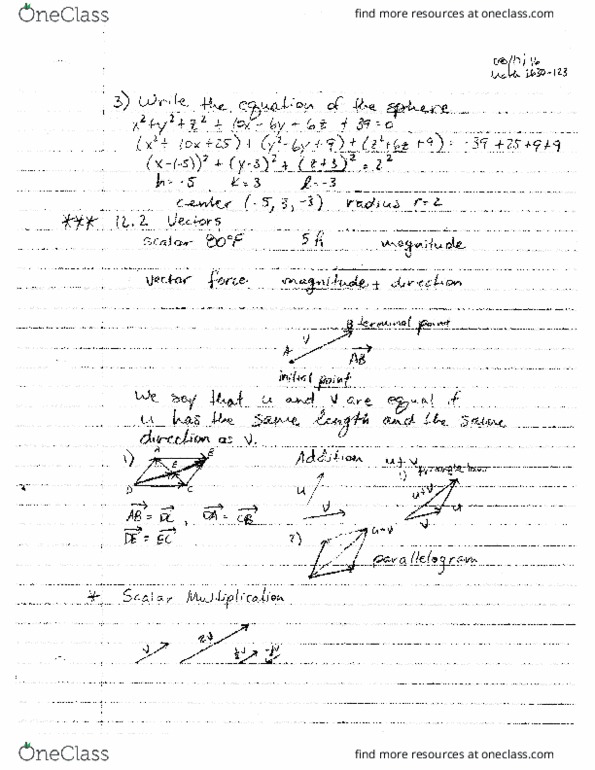 OneClass
find more resources at oneclass.com
3) Write the equation of the sphere
x²+y²+z² + 10x - 6y + 6z + 39 = 0
(x² + 10x + 25) + (y² - 6y + 9) + (z² + 6z + 9) = -39 + 25 + 9 + 9
(x-(-5))² + (y-3)² + (z+3)² = 2²
h = -5 k = 3 l = -3
center (-5, 3, -3) radius r = 2
*** 12.2 Vectors
scalar 80°F 5 ft magnitude
vector force magnitude + direction
B terminal point
V
A AB
initial point
We say that u and v are equal if
u has the same length and the same
direction as v.
1) A B Addition u + v
1) triangle law
E
u u+v u
D C v v
AB = DC, DA = CB
DE = EC
2) u+v
parallelogram
* Scalar Multiplication
v 2v ½v -½v
OneClass
find more resources at oneclass.com